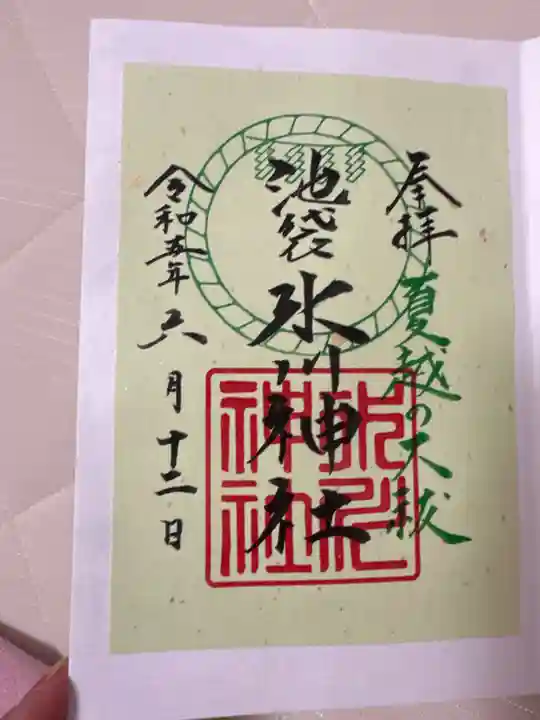 奉拝
夏越の大祓
池袋
氷川神社
氷川
神社
令和五年
六月十二日